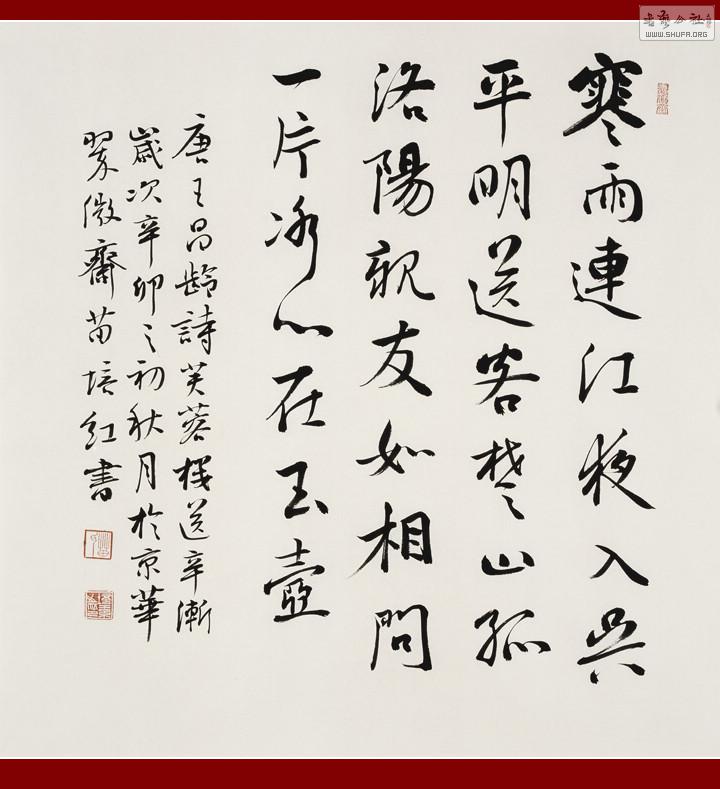 書藝公社
WWW.SHUFA.ORG
寒雨連江夜入吳
平明送客楚山孤
洛陽親友如相問
一片冰心在玉壺
唐王昌齡詩芙蓉樓送辛漸
歲次辛卯之初秋月於京華
翠微齋苗培紅書